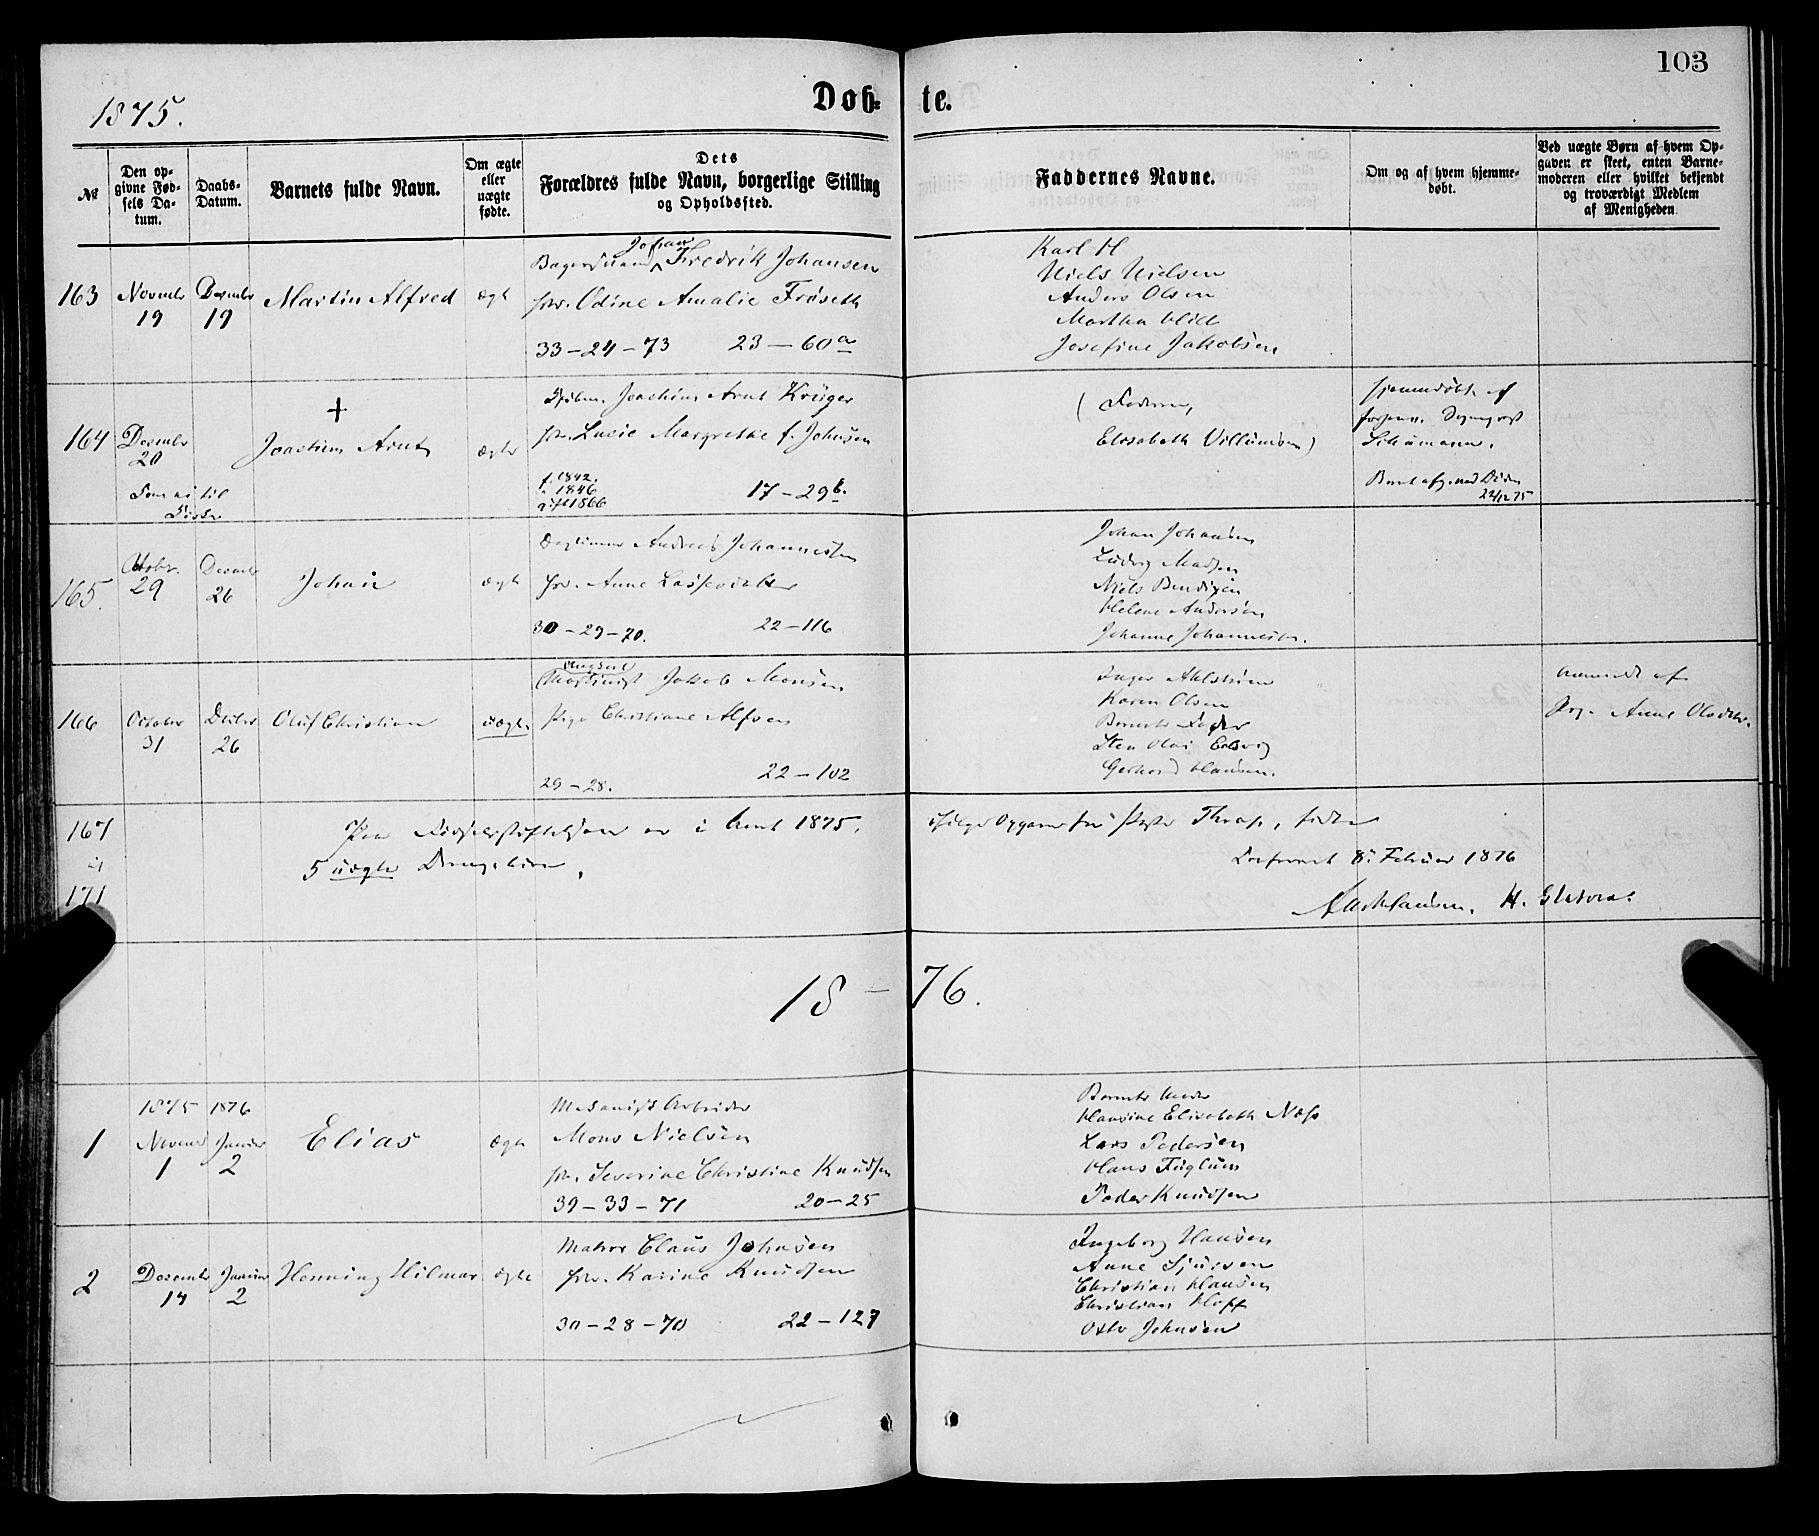 103
1875.
Døb- te.
№
Den op-
givne Fød-
sels Da-
tum.
Daabs-
Datum.
Barnets fulde Navn.
Om ægte
eller
uægte
fødte.
Dets
Forældres fulde Navn, borgerlige Stilling
og Opholdssted.
Faddernes Navne.
Om og af hvem hjemme-
døbt.
Ved uægte Børn af hvem Op-
gaven er skeet, enten Barne-
moderen eller hvilket bekjendt
og troværdigt Medlem
af Menigheden
163
Novembr
19
Desembr
19
Martin Alfred
ægte
Johan
Fredrik Johansen
Odine Amalie Frøseth
33-24-73 23-60a
Karl H
Niels Nielsen
Anders Olsen
Martha Hill
Josefine Jakobsen
164
Desembr
20
+
Joachim Arnt
ægte
Joachim Arnt Krüger
Lucie Margrethe f. Johnsen
f. 1842.
" 1846
gift 1866
17-29b.
( Faderen,
Elisabeth Villumsen)
hjemmedøbt af
Schumann.
22/12 75
165.
Octobr.
29
Desembr
26
Johan
ægte
Andreas Johannesen
Anne
30-29-70. 22-116
Johan Johansen
Ludvig Madsen
Niels Bendixen
Helene Andersen
Johanne Johannesen.
166
October
31
Desbr
26
Oluf Christian
uægte
Jakob Monsen
Pige Christiane Alfsen
29-28. 22-102
Inger Ahlstrøm
Karen Olsen
Barnets Fader
Sten Olai
Gerhard Hansen.
anmeldt af
Anne Olsdtr.
167
til
171
Paa Fødselsstiftelsen er i Aaret 1875,
5 uægte Drengebørn,
ifølge Opgave fra Thrap, født
8. Februar 1876
18-76.
1
1875
November
1
1876
Januar
2
Elias
ægte
Mekanisk Arbeider
Mons Nielsen
Severine Christine Knudsen
39-33-71 20-25
Barnets Moder
Hansine Elisabeth Næss
Lars Pedersen
Hans Fuglum
Peder Knudsen
2
Desembr
14
Januar
2
Henning Hilmar
ægte
Matros Claus Johnsen
Karine Knudsen
30-28-70 22-127
Ingeborg Hansen
Anne Sjursen
Christian Hansen
Christian Hoff
Johnsen